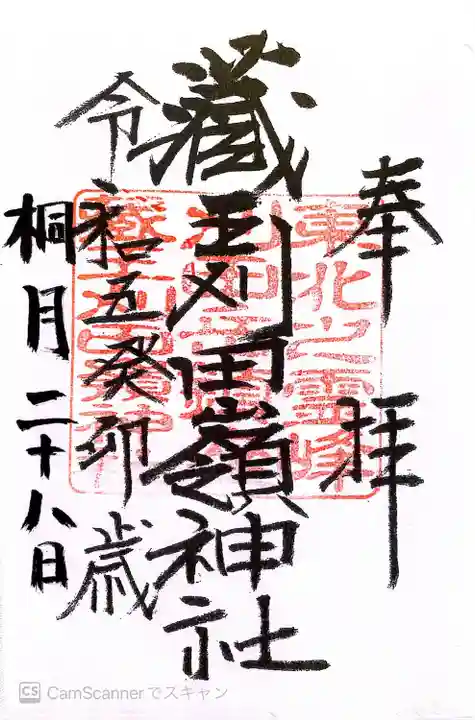 奉拝
東北之霊峰
藏王刈田嶺神社
令和五癸卯歳
桐月二十八日
CamScannerでスキャン